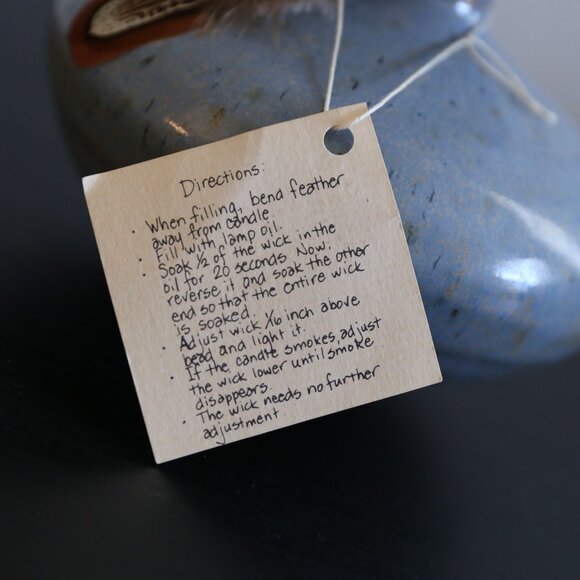 Directions:
• When filling, bend feather
away from candle.
• Fill with lamp oil.
• Soak 1/2 of the wick in the
oil for 20 seconds. Now,
reverse it and soak the other
end so that the entire wick
is soaked.
• Adjust wick 1/16 inch above
bead and light it.
• If the candle smokes, adjust
the wick lower until smoke
disappears.
• The wick needs no further
adjustment.